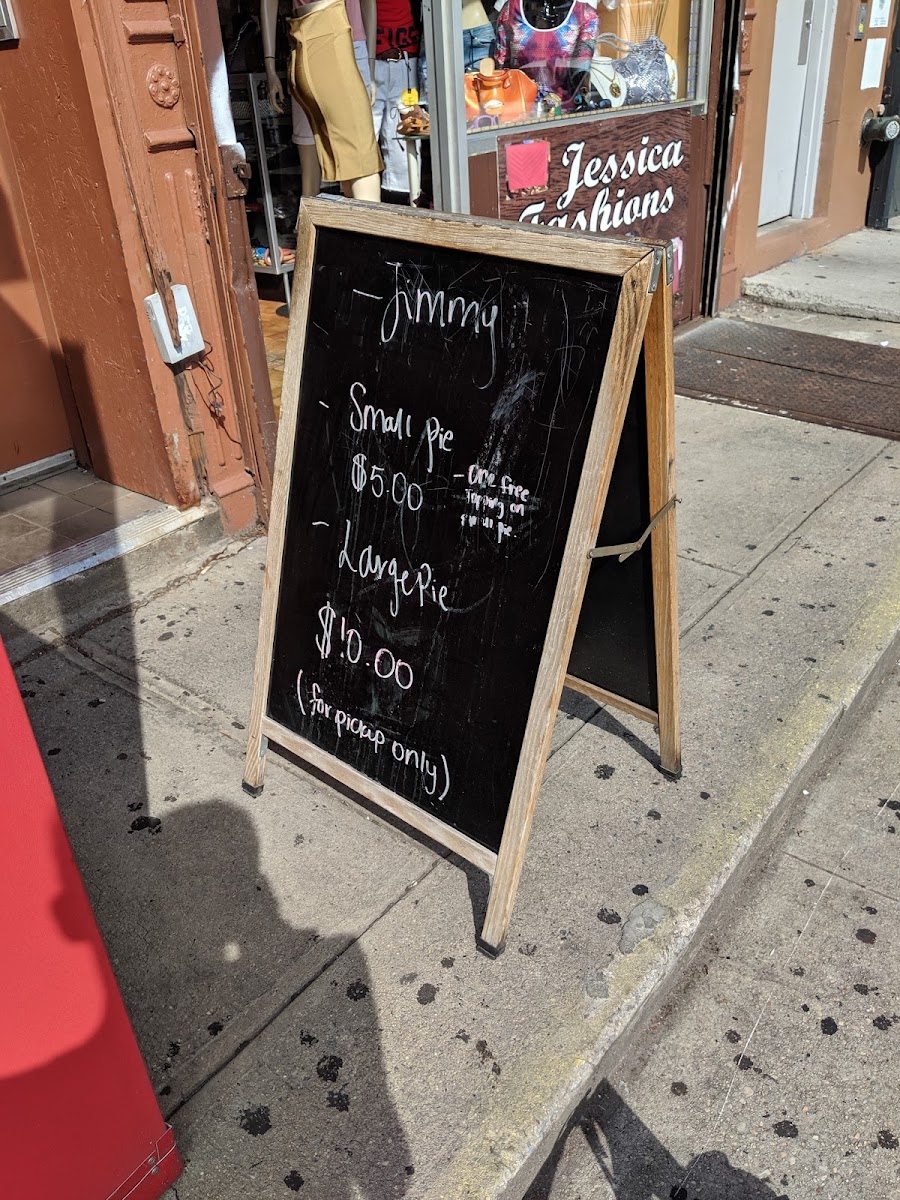 Jessica
Fashions
- Jimmy
- Small pie
$5.00
- One free
Topping on
pie
- Large Pie
$10.00
(for pickup only)